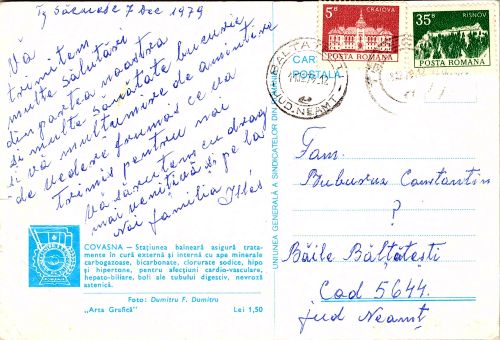 Tg Săcuesc 7 Dec 1979
Vă
trimitem
multe salutări
din partea noastră
și multe sănătate bucurie
și vă mulțumire de amintire
de vedere frumos ce va
trimis pentru noi
Vă sărutem cu drag
mai venitivă și pe la
Noi familia Illés
COVASNA — Stațiunea balneară asigură trata-
mente în cură externă și internă cu ape minerale
carbogazoase, bicarbonate, clorurate sodice, hipo
și hipertone, pentru afecțiuni cardio-vasculare,
hepato-biliare, boli ale tubului digestiv, nevroză
astenică.
Foto: Dumitru F. Dumitru
„Arta Grafică” Lei 1,50
UNIUNEA GENERALĂ A SINDICATELOR DIN
CARTE
POSTALA
5B CRAIOVA
POSTA ROMANA
35B RISNOV
POSTA ROMANA
JUD. NEAMT
Fam.
Buburuz Constantin
?
Băile Bălțătești
Cod 5644.
jud Neamț